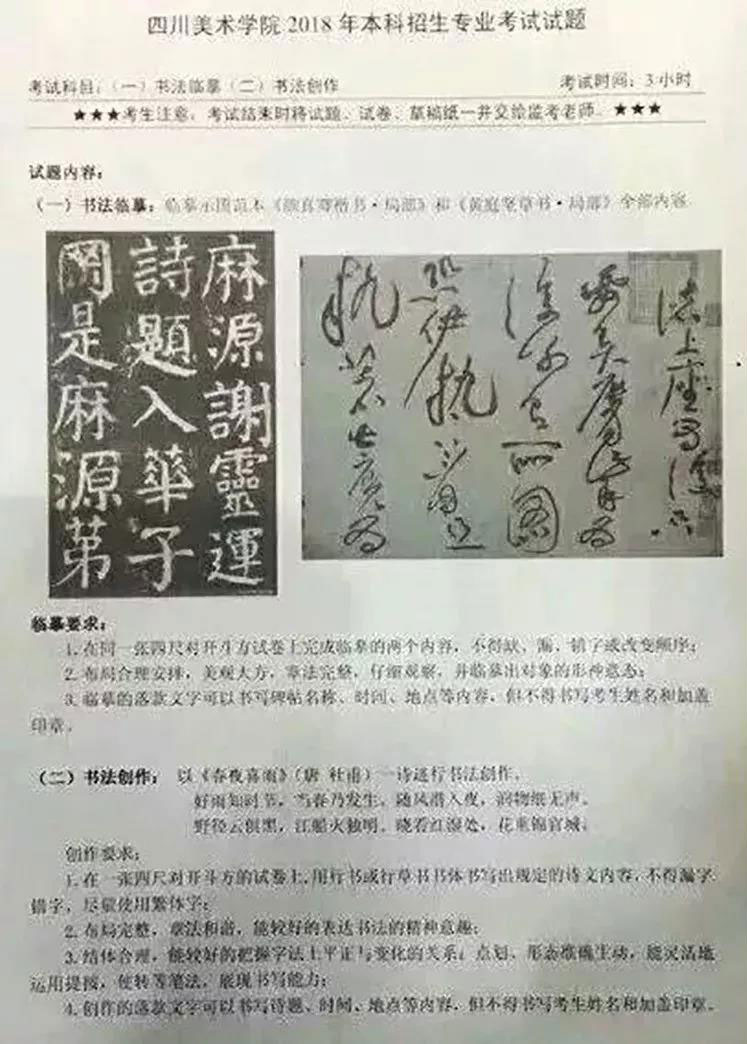 四川美术学院 2018 年本科招生专业考试试题
考试科目：（一）书法临摹（二）书法创作
考试时间：3 小时
★★★考生注意：考试结束时将试题、试卷、草稿纸一并交给监考老师。★★★
试题内容：
（一）书法临摹：临摹示图范本《颜真卿楷书·局部》和《黄庭坚草书·局部》全部内容
麻源謝靈運
詩題入華子
岡是麻源第
诸上座为
执着
临摹要求：
1.在同一张四尺对开斗方试卷上完成临摹的两个内容，不得缺、漏、错字或改变顺序；
2.布局合理安排，美观大方，章法完整，仔细观察，并临摹出对象的形神意态；
3.临摹的落款文字可以书写碑帖名称、时间、地点等内容，但不得书写考生姓名和加盖
印章。
（二）书法创作： 以《春夜喜雨》（唐 杜甫）一诗进行书法创作。
好雨知时节，当春乃发生。随风潜入夜，润物细无声。
野径云俱黑，江船火独明。晓看红湿处，花重锦官城。
创作要求：
1.在一张四尺对开斗方的试卷上，用行书或行草书书体书写出规定的诗文内容，不得漏字
错字，尽量使用繁体字；
2.布局完整，章法和谐，能较好的表达书法的精神意趣；
3.结体合理，能较好的把握字法上平正与变化的关系；点划、形态准确生动，能灵活地
运用提按、使转等笔法，展现书写能力；
4.创作的落款文字可以书写诗题、时间、地点等内容，但不得书写考生姓名和加盖印章。